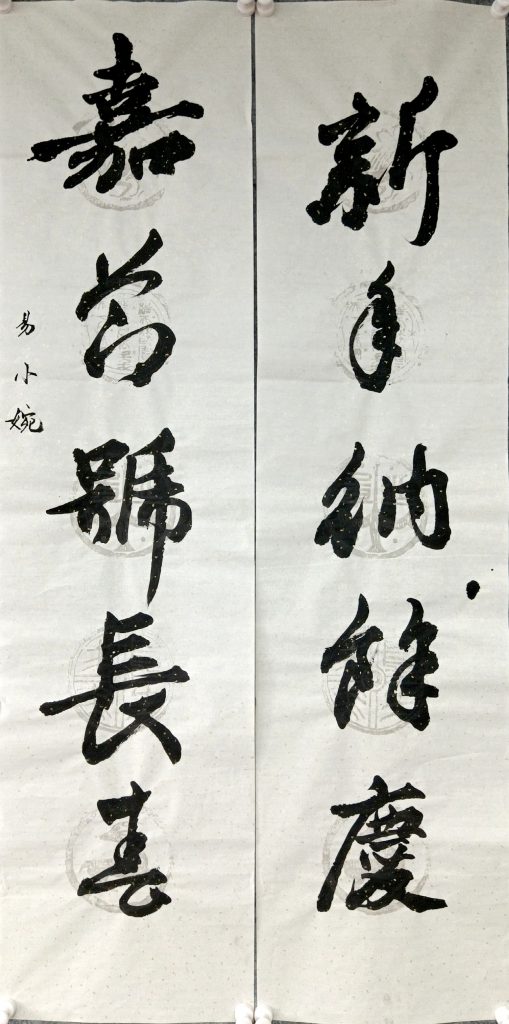 新年納餘慶
嘉節號長春
易小婉